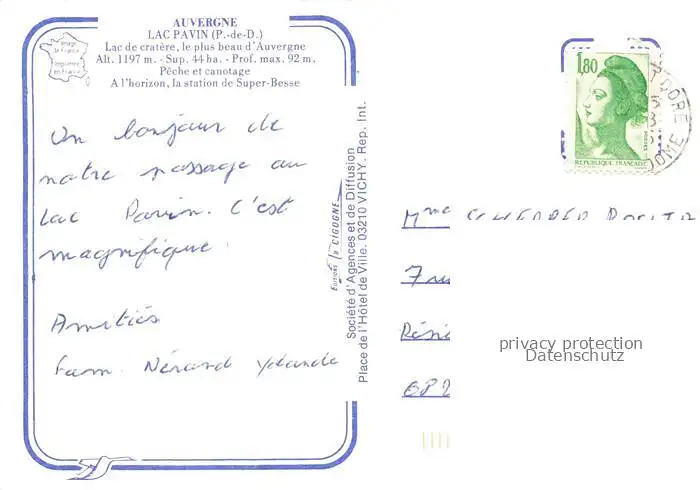 AUVERGNE
LAC PAVIN (P.-de-D.)
Lac de cratère, le plus beau d'Auvergne
Alt. 1197 m. - Sup. 44 ha. - Prof. max. 92 m.
Pêche et canotage
A l'horizon, la station de Super-Besse
Image de France
Imprimée en France
Un bonjour de
notre passage au
Lac Pavin. C'est
magnifique.
Amitiés
Fam. Nérard Yolande
Editions CIGOGNE
Société d'Agences et de Diffusion
Place de l'Hôtel de Ville. 03210 VICHY. Rep. Int.
1,80
REPUBLIQUE FRANÇAISE
T DORE
DOME
Mme
Rési
privacy protection
Datenschutz